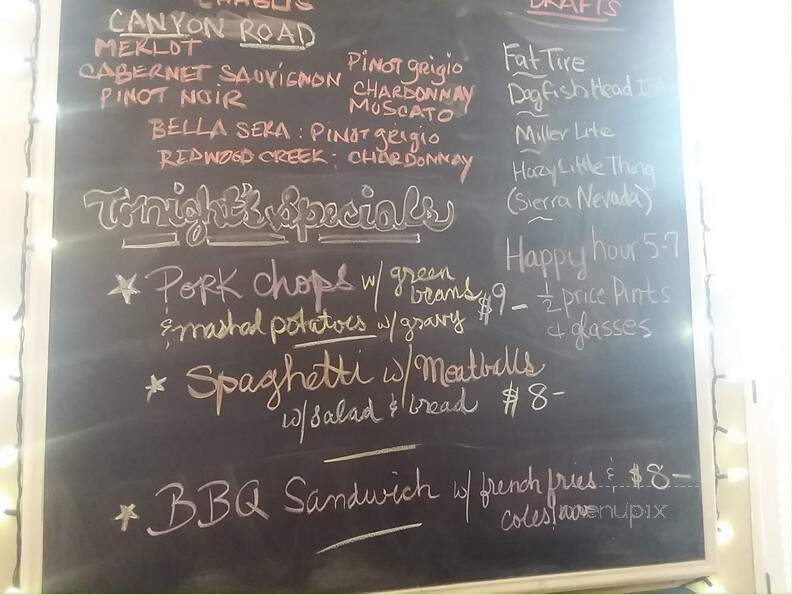 CHABLIS
CANYON ROAD
MERLOT
CABERNET SAUVIGNON
PINOT NOIR
Pinot grigio
CHARDONNAY
MOSCATO
BELLA SERA: Pinot grigio
REDWOOD CREEK: CHARDONNAY
DRAFTS
Fat Tire
Dogfish Head IPA
Miller Lite
Hazy Little Thing
(Sierra Nevada)
Happy hour 5-7
1/2 price Pints
& glasses
Tonight's specials
Pork chops w/ green beans $9-
& mashed potatoes w/ gravy
Spaghetti w/ Meatballs
w/ salad & bread $8-
BBQ Sandwich w/ french fries & $8-
coleslaw
menupix